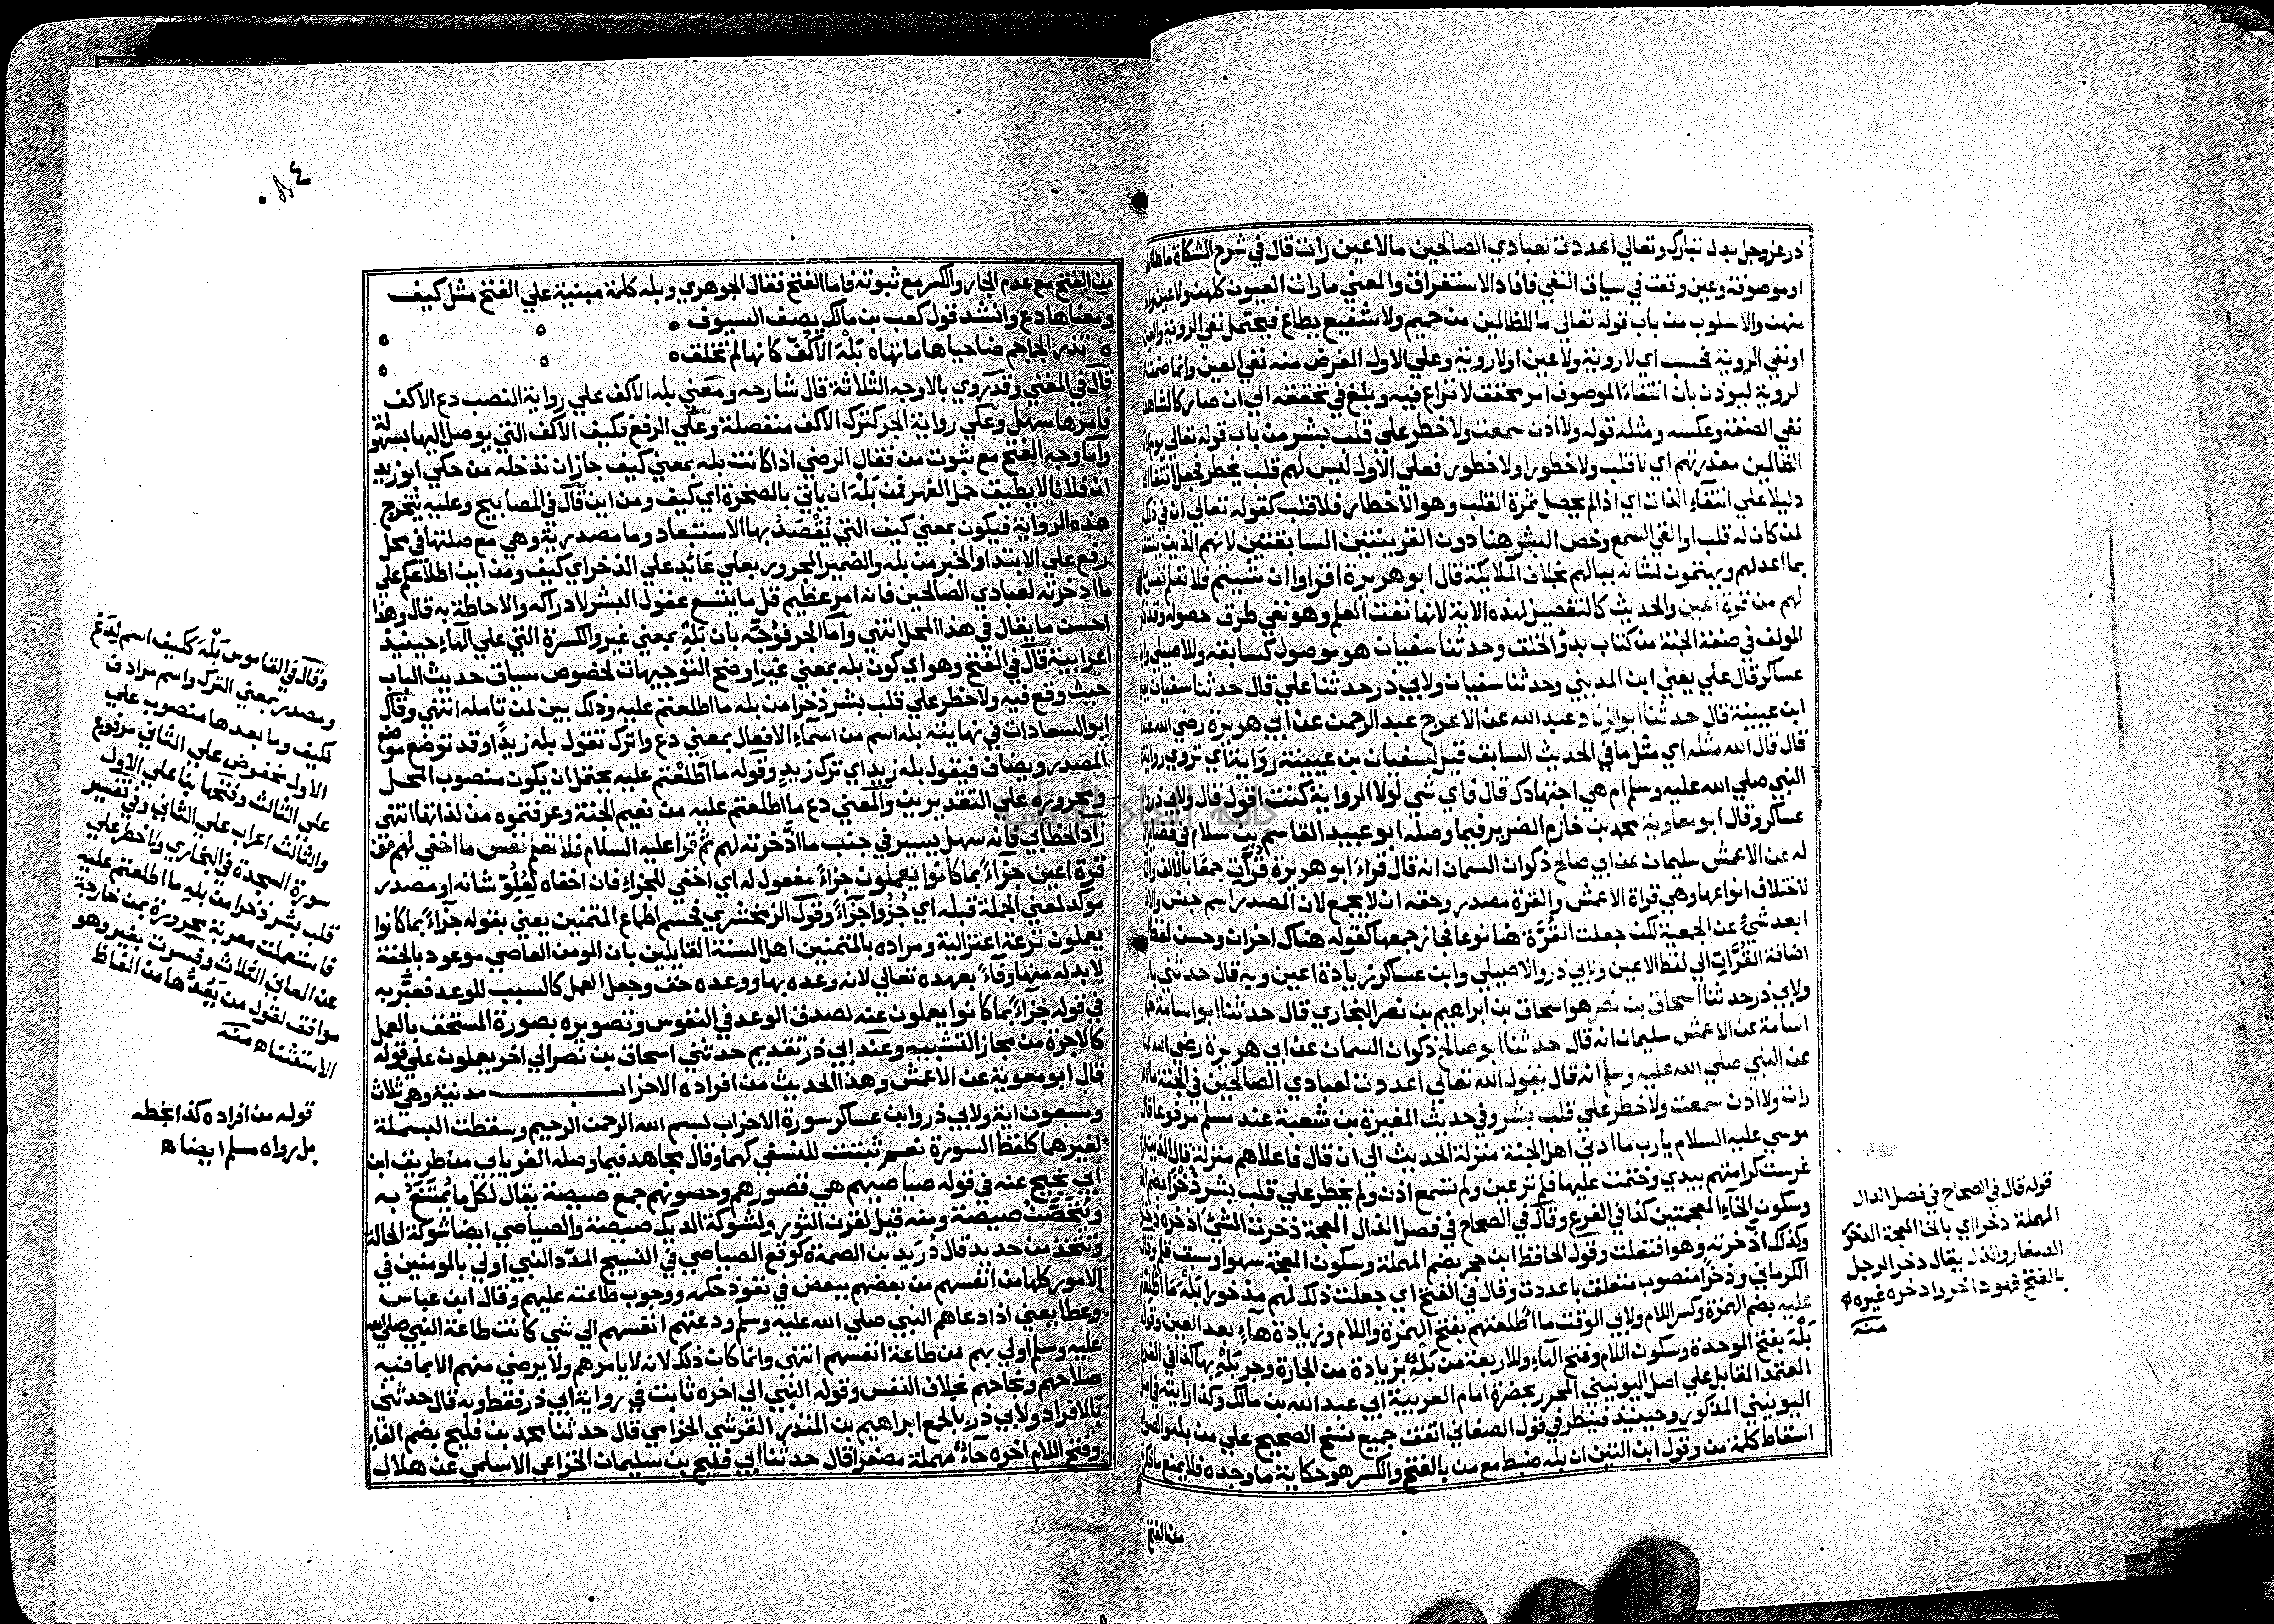 ذر عز وجل بدل تبارك وتعالي اعددت لعبادي الصالحين ما لاعين رات قال في شرح المشكاة ما هنا
او موصوفة وعين وقعت في سياق النفي فافاد الاستغراق والمعني ما رات العيون كلهن ولا عين
منهن والاسلوب من باب قوله تعالي ما للظالمين من حميم ولا شفيع يطاع فيحتمل نفي الروية والعين
او نفي الروية فحسب اي لا روية ولا عين او لا روية وعلي الاول الغرض منه نفي العين وانما ضمت
الروية ليوذن بان انتفاء الموصوف امر محقق لا نزاع فيه وبلغ في تحققه الي ان صار كالشاهد
نفي الصفة وعكسه ومثله قوله ولا اذن سمعت ولا خطر علي قلب بشر من باب قوله تعالي يوم
الظالمين معذرتهم اي لا قلب ولا خطور او لا خطور فعلي الاول ليس لهم قلب يخطر فجعل انتفا
دليلا علي انتفاء الذات اي اذا لم يحصل ثمرة القلب وهو الاخطار فلا قلب كقوله تعالي ان في ذلك
لمن كان له قلب او القي السمع وخص البشر هنا دون القرينتين السابقتين لانهم الذين ينتفعون
بما اعد لهم ويهتمون لشانه ببالهم بخلاف الملائكة قال ابو هريرة اقراوا ان شيتم فلا تعلم نفس
لهم من قرة اعين والحديث كالتفصيل لهذه الاية لانها نفت العلم وهو نفي طرق حصوله وقد
المولف في صفة الجنة من كتاب بدؤ الخلق وحدثنا سفيان هو موصول كسابقه وللاصيلي
عساكر قال علي يعني ابن المديني وحدثنا سفيان ولابي ذر حدثنا علي قال حدثنا سفيان
ابن عيينة قال حدثنا ابو الزناد عبد الله عن الاعرج عبد الرحمن عن ابي هريرة رضي الله
قال قال الله مثله اي مثل ما في الحديث السابق قيل لسفيان بن عيينة رواية اي تروي رواية
النبي صلي الله عليه وسلم ام هي اجتهادك قال فاي شي لولا الرواية كنت اقول قال ولابي ذر
عساكر وقال ابو معاوية محمد بن خازم الضرير فيما وصله ابو عبيد القاسم بن سلام في فضايل
له عن الاعمش سليمان عن ابي صالح ذكوان السمان انه قال قراء ابو هريرة قرآت جمعا بالالف
لاختلاف انواعها وهي قراة الاعمش والقرة مصدر وحقه ان لا يجمع لان المصدر اسم جنس
ابعد شئ عن الجمعية لكن جعلت القرة هنا نوعا فجاز جمعها كقوله هناك احزان وحسن لفظ
اضافة القرات الي لفظ الاعين ولابي ذر والاصيلي وابن عساكر زيادة اعين وبه قال حدثني
ولابي ذر حدثنا اسحاق بن نصر هو اسحاق بن ابراهيم بن نصر البخاري قال حدثنا ابو اسامة
اسامة عن الاعمش سليمان انه قال حدثنا ابو صالح ذكوان السمان عن ابي هريرة رضي الله
عن النبي صلي الله عليه وسلم انه قال يقول الله تعالي اعددت لعبادي الصالحين في الجنة ما
رات ولا اذن سمعت ولا خطر علي قلب بشر وفي حديث المغيرة بن شعبة عند مسلم مرفوعا قال
موسي عليه السلام يا رب ما ادني اهل الجنة منزلة الحديث الي ان قال فاعلاهم منزلة قال
غرست كرامتهم بيدي وختمت عليها فلم تر عين ولم تسمع اذن ولم يخطر علي قلب بشر ذخرا بضم
وسكون الخاء المعجمتين كذا في الفرع وقال في الصحاح في فصل الذال المعجمة ذخرت الشئ اذخره
وكذلك اذخرته وهو افتعلت وقول الحافظ ابن حجر بضم المهملة وسكون المعجمة سهوا وسبق قلم وقال
الكرماني وذخرا منصوب متعلق باعددت وقال في الفتح اي جعلت ذلك لهم مذخورا بله ما اطلعتم
عليه بضم الهمزة وكسر اللام ولابي الوقت ما اطلعتهم بفتح الهمزة واللام وزيادة هاء بعد العين وقوله
بله بفتح الموحدة وسكون اللام وفتح الهاء وللاربعة من بله بزيادة من الجارة وجر بله بها كذا في الفرع
المعتمد المقابل علي اصل اليونيني المحرر بحضرة امام العربية ابي عبد الله بن مالك وكذا رايته في
اليونيني المذكور وحينيذ فينظر في قول الصغاني اتفقت جميع نسخ الصحيح علي من بله والصواب
اسقاط كلمة من وقول ابن التين ان بله ضبط مع من بالفتح والكسر هو حكاية ما وجده فلا يمنع
من الفتح
قوله قال في الصحاح في فصل الدال
المهملة دخراي بالخا المعجمة الدخور
الصغار والذل يقال دخر الرجل
بالفتح فهو داخر وادخره غيره اه
منه
من الفتح مع عدم الجار والكسر مع ثبوته فاما الفتح فقال الجوهري وبله كلمة مبنية علي الفتح مثل كيف
ومعناها دع وانشد قول كعب بن مالك يصف السيوف
تذر الجماجم ضاحيا هاماتها ٥ بله الاكف كانها لم تخلق ٥
قال في المغني وقد روي بالاوجه الثلاثة قال شارحه ومعني بله الاكف علي رواية النصب دع الاكف
فامرها سهل وعلي رواية الجر كترك الاكف منفصلة وعلي الرفع فكيف الاكف التي يوصل اليها بسهولة
واما وجه الفتح مع ثبوت من فقال الرضي اذا كانت بله بمعني كيف جاز ان تدخله من حكي ابو زيد
ان فلانا لا يطيق حمل الفهر فمن بله ان ياتي بالصخرة اي كيف ومن اين قال في المصابيح وعليه يتخرج
هذه الرواية فيكون بمعني كيف التي يقصد بها الاستبعاد وما مصدرية وهي مع صلتها في محل
رفع علي الابتدا والخبر من بله والضمير المجرور بعلي عائد علي الذخر اي كيف ومن اين اطلاعكم علي
ما ادخرته لعبادي الصالحين فانه امر عظيم قل ما يتسع عقول البشر لادراكه والاحاطة به قال وهذا
احسن ما يقال في هذا المحل انتهي واما الجر فوجه بان بله بمعني غير والكسرة التي علي الهاء حينيذ
اعرابية قال في الفتح وهو اي كون بله بمعني غير اوضح التوجيهات لخصوص سياق حديث الباب
حيث وقع فيه ولا خطر علي قلب بشر ذخرا من بله ما اطلعتم عليه وذلك بين لمن تامله انتهي وقال
ابو السعادات في نهايته بله اسم من اسماء الافعال بمعني دع واترك تقول بله زيدا وقد توضع موضع
المصدر ويضاف فيقول بله زيد اي ترك زيد وقوله ما اطلعتم عليه يحتمل ان يكون منصوب المحل
ومجروره علي التقديرين والمعني دع ما اطلعتم عليه من نعيم الجنة وعرفتموه من لذاتها انتهي
زاد الخطابي فانه سهل يسير في جنب ما ادخرته لهم ثم قرا عليه السلام فلا تعلم نفس ما اخفي لهم من
قرة اعين جزاء بما كانوا يعملون جزاء مفعول له اي اخفي للجزاء فان اخفاه لعلو شانه او مصدر
موكد لمعني الجملة قبله اي جزوا جزاء وقول الزمخشري فحسم اطماع المتمنين يعني بقوله جزاء بما كانوا
يعملون نزعة اعتزالية ومراده بالمتمنين اهل السنة القايلين بان المومن العاصي موعود بالجنة
لا بد له منها وفاء بعهده تعالي لانه وعده بها ووعده حق وجعل العمل كالسبب للوعد فعبر به
في قوله جزاء بما كانوا يعملون عنه لصدق الوعد في النفوس وتصويره بصورة المستحق بالعمل
كالاجرة من مجاز التشبيه وعند ابي ذر تقديم حدثني اسحاق بن نصر الي اخر يعملون علي قوله
قال ابو معوية عن الاعمش وهذا الحديث من افراده الاحزاب مدنية وهي ثلاث
وسبعون اية ولابي ذر وابن عساكر سورة الاحزاب بسم الله الرحمن الرحيم وسقطت البسملة
لغيرهما كلفظ السورة نعم ثبتت للنسفي كهما وقال مجاهد فيما وصله الفريابي من طريق ابن
ابي نجيح عنه في قوله صياصيهم هي قصورهم وحصونهم جمع صيصة يقال لكل ما يمتنع به
ويتحصن صيصة ومنه قيل لقرن الثور ولشوكة الديك صيصة والصياصي ايضا شوكة الحاكة
وتتخذ من حديد قال دريد بن الصمة ٥ كوقع الصياصي في النسيج الممدد النبي اولي بالمومنين في
الامور كلها من انفسهم من بعضهم ببعض في نفوذ حكمه ووجوب طاعته عليهم وقال ابن عباس
وعطا يعني اذا دعاهم النبي صلي الله عليه وسلم ودعتهم انفسهم الي شي كانت طاعة النبي صلي الله
عليه وسلم اولي بهم من طاعة انفسهم انتهي وانما كان ذلك لانه لا يامرهم ولا يرضي منهم الا بما فيه
صلاحهم ونجاحهم بخلاف النفس وقوله النبي الي اخره ثابت في رواية ابي ذر فقط وبه قال حدثني
بالافراد ولابي ذر بالجمع ابراهيم بن المنذر القرشي الحزامي قال حدثنا محمد بن فليح بضم الفاء
وفتح اللام اخره حاء مهملة مصغرا قال حدثنا ابي فليح بن سليمان الخزاعي الاسلمي عن هلال
وقال في القاموس بله ككيف اسم لدع
ومصدر بمعني الترك واسم مرادف
لكيف وما بعدها منصوب علي
الاول مخفوض علي الثاني مرفوع
علي الثالث وفتحها بنا علي الاول
والثالث اعراب علي الثاني وفي تفسير
سورة السجدة في البخاري ولا خطر علي
قلب بشر ذخرا من بله ما اطلعتم عليه
فاستعملت معربة مجرورة بمن خارجة
عن المعاني الثلاث وفسرت بغير وهو
موافق لقول من يعدها من الفاظ
الاستثناه منه
قوله من افراده كذا بخطه
بل رواه مسلم ايضا ه